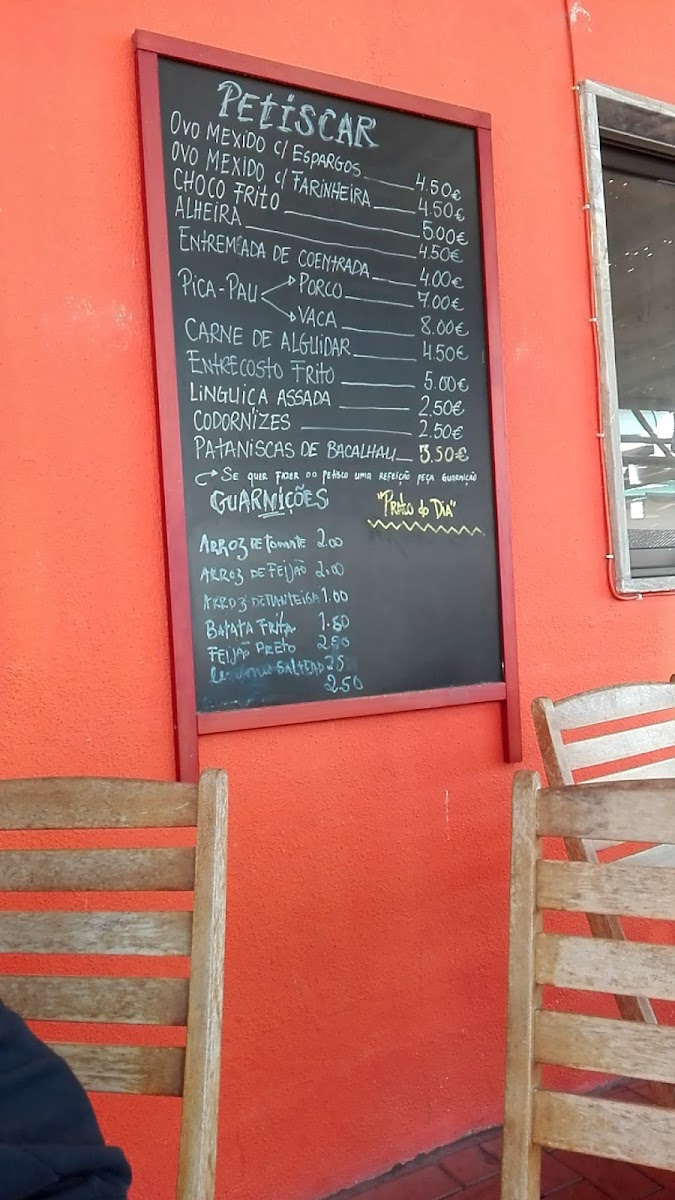 PEtiSCAR
OVO MEXIDO c/ ESPARGOS 4.50€
OVO MEXIDO c/ FARINHEIRA 4.50€
CHOCO FRITO 5.00€
ALHEIRA 4.50€
ENTREMEADA DE COENTRADA 4.00€
PICA-PAU PORCO 7.00€
VACA 8.00€
CARNE DE ALGUIDAR 4.50€
ENTRECOSTO FRITO 5.00€
LINGUIÇA ASSADA 2.50€
CODORNIZES 2.50€
PATANISCAS DE BACALHAU 3.50€
SE QUER FAZER DO PETISCO UMA REFEIÇÃO PEÇA GUARNIÇÃO
GUARNIÇÕES
"Prato do Dia"
ARROZ DE TOMATE 2.00
ARROZ DE FEIJÃO 2.00
ARROZ DE MANTEIGA 1.00
BATATA FRITA 1.80
FEIJÃO PRETO 2.50
SALTEAD
2.50